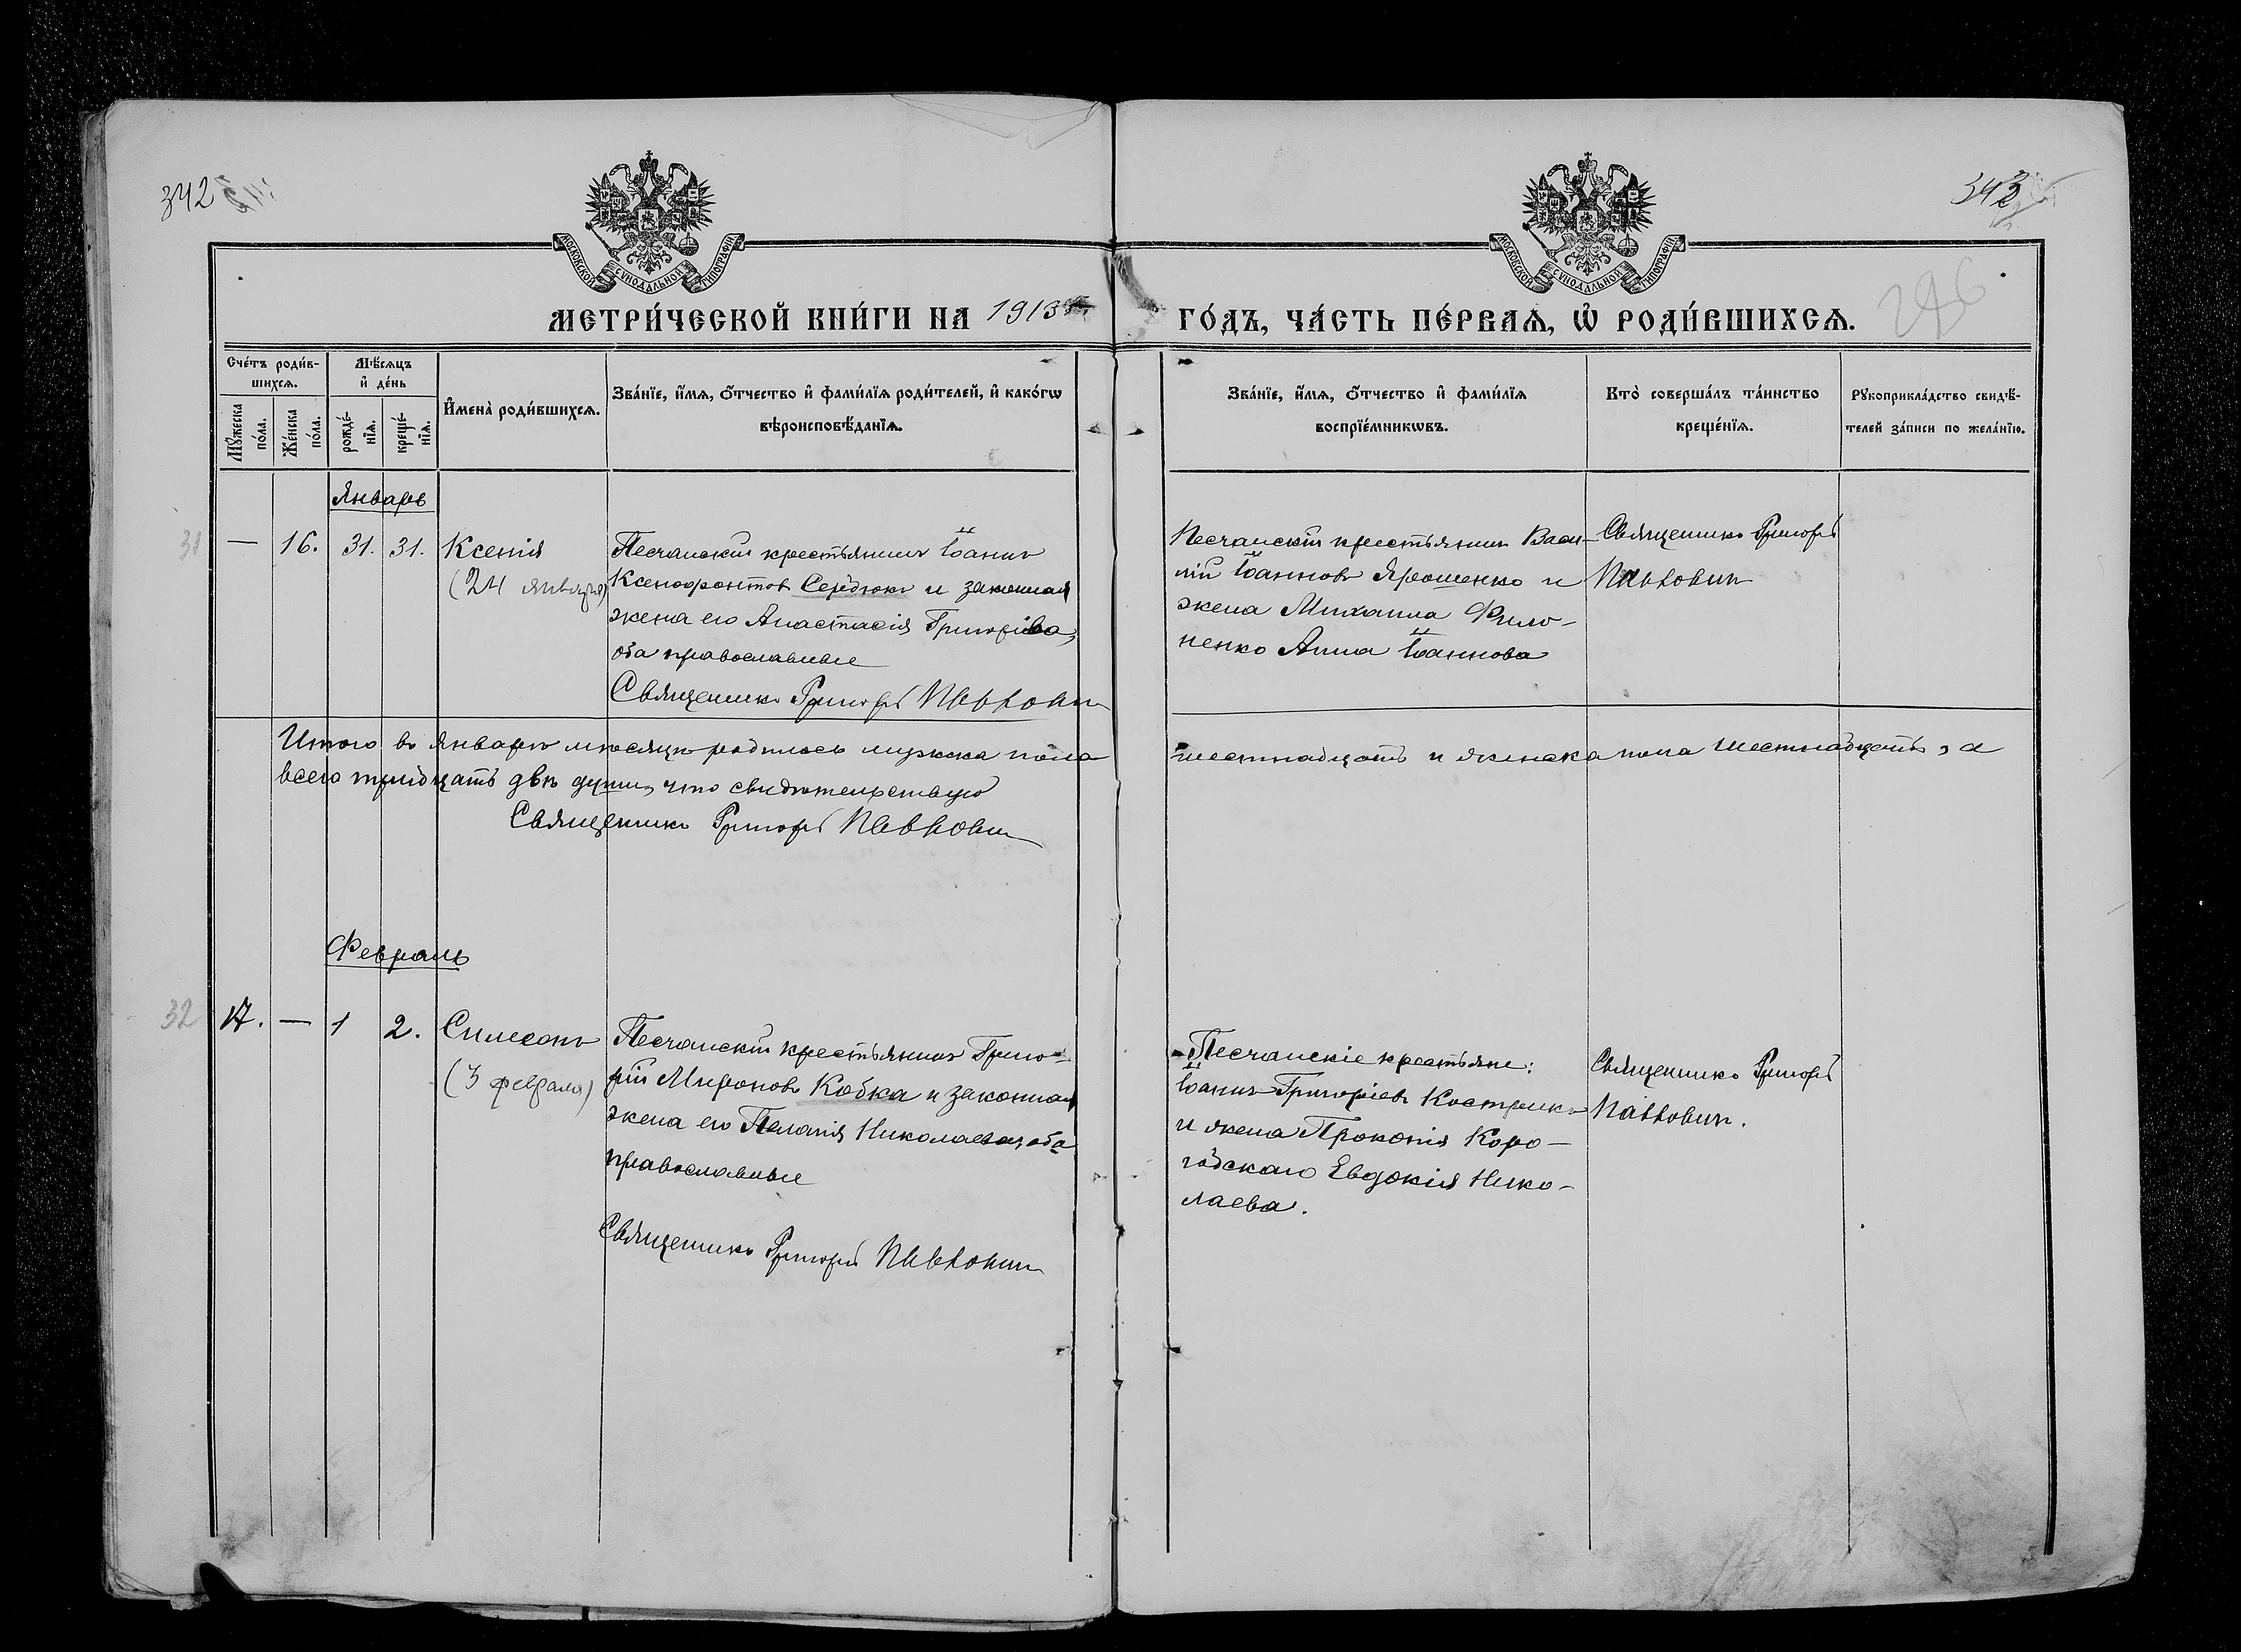 342
343
МОСКОВСКОЙ СѴНОДАЛЬНОЙ ТИПОГРАФІИ
МОСКОВСКОЙ СѴНОДАЛЬНОЙ ТИПОГРАФІИ
МЕТРИ́ЧЕСКОЙ КНИ́ГИ НА 1913
ГО́ДЪ, ЧА́СТЬ ПЕ́РВАѦ, Ѡ҆ РОДИ́ВШИХСѦ.
Сче́тъ роди́в-
шихсѧ.
Мѣ́сѧцъ
и҆ де́нь
Мꙋ́жеска
по́ла.
Же́нска
по́ла.
рожде́-
нїѧ.
креще́-
нїѧ.
И҆мена̀ роди́вшихсѧ.
Зва́нїе, и҆́мѧ, о҆́тчество и҆ фами́лїѧ роди́телей, и҆ како́гѡ
вѣроисповѣ́данїѧ.
Зва́нїе, и҆́мѧ, о҆́тчество и҆ фами́лїѧ
воспрїе́мникѡвъ.
Кто̀ соверша́лъ та́инство
креще́нїѧ.
Рꙋкоприкла́дство свидѣ́-
телей за́писи по жела́нїю.
Январь
31
— 16. 31. 31. Ксенія
(24 января)
Песчанскій крестьянинъ Іоаннъ
Ксенофонтовъ Середюкъ и законная
жена его Анастасія Григоріева,
оба православные
Священникъ Григорій Павловичъ
Песчанскій крестьянинъ Васи-
лій Іоанновъ Ярошенко и
жена Михаила Фило-
ненко Анна Іоаннова
Священникъ Григорій
Павловичъ
Итого въ январѣ мѣсяцѣ родилось мужска пола
шестнадцать и женска пола шестнадцать, а
всего тридцать двѣ души, что свидѣтельствую
Священникъ Григорій Павловичъ
Февраль
32
17. — 1 2. Симеонъ
(3 февраля)
Песчанскій крестьянинъ Григо-
рій Мироновъ Кобка и законная
жена его Пелагія Николаева, оба
православные
Священникъ Григорій Павловичъ
Песчанскіе крестьяне:
Іоаннъ Григоріевъ
и жена Прокопія Коро-
годскаго Евдокія Нико-
лаева.
Священникъ Григорій
Павловичъ.